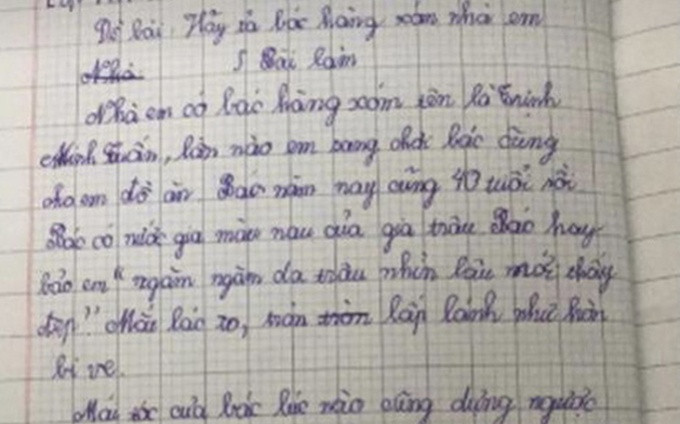 Đề bài: Hãy tả bác hàng xóm nhà em
Nhà
Bài làm
Nhà em có bác hàng xóm tên là Trịnh
Minh Tuấn, lần nào em sang chơi bác cũng
cho em đồ ăn. Bác năm nay cũng 40 tuổi rồi
Bác có nước gia màu nau của gia trâu Bác hay
bảo em "ngăm ngăm da trâu nhìn lâu mới thấy
đẹp" Mắt bác to, tròn lấp lánh như hòn
bi ve.
Mái tóc của bác lúc nào cũng dựng ngược